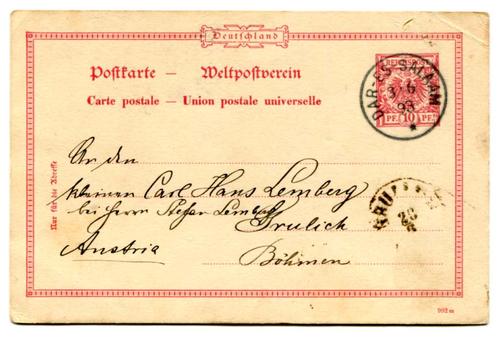 Deutschland
Postkarte — Weltpostverein
Carte postale — Union postale universelle
REICHSPOST
PF. 10 PF.
DAR-ES-SALAAM
3/6
93
*
Nur für die Adresse
An den
kleinen Carl Hans Lemberg
bei Herrn Stefan Lemberg
Grulich
Austria
Böhmen
GRULICH
20
992 m